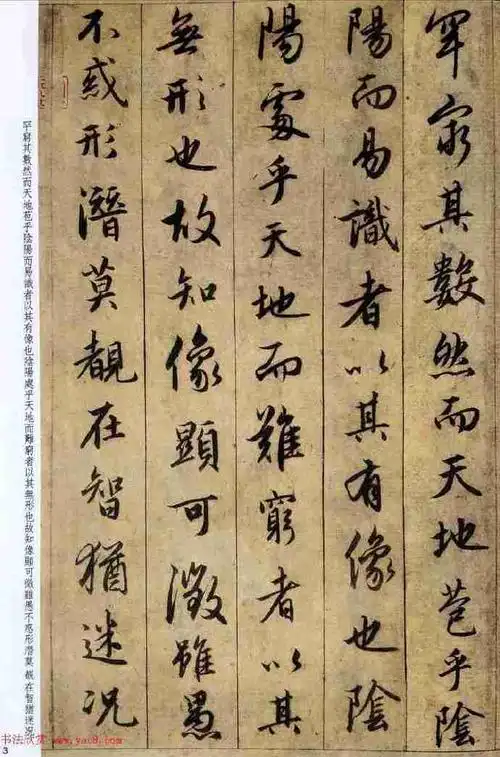 罕窮其數然而天地苞乎陰
陽而易識者以其有像也陰
陽處乎天地而難窮者以其
無形也故知像顯可徵雖愚
不惑形潛莫覩在智猶迷况
罕窮其數然而天地苞乎陰陽而易識者以其有像也陰陽處乎天地而難窮者以其無形也故知像顯可徵雖愚不惑形潛莫覩在智猶迷况
书法欣赏 www.yac8.com
3